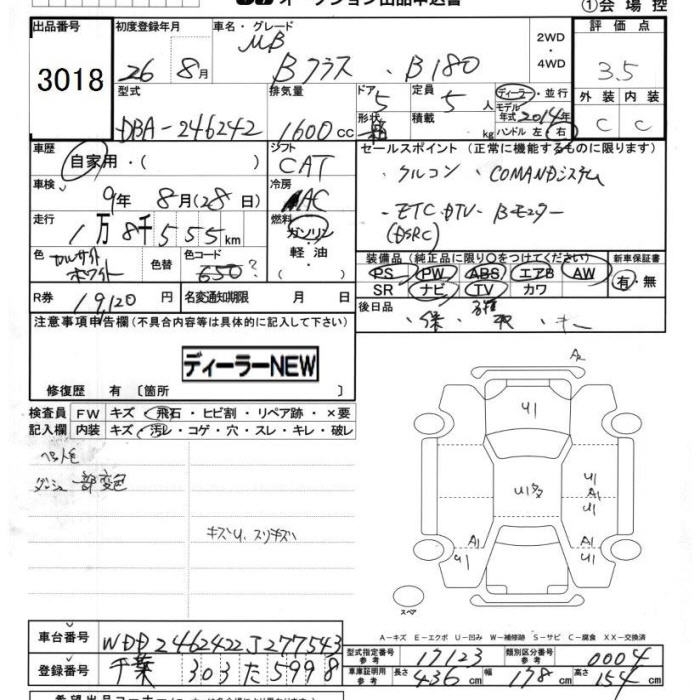 オークション出品申込書
①会場控
出品番号 初度登録年月 車名・グレード 評価点
3018 26 8月 MB Bクラス・B180 2WD・4WD 3.5
型式 排気量 ドア 定員 ディーラー・並行 外装 内装
DBA-246242 1600cc 5 5人 モデル年式 2014年 C C
形状 積載 kg ハンドル 左・右
車歴 シフト セールスポイント (正常に機能するものに限ります)
自家用・( ) CAT
・クルコン・COMANDシステム
車検 冷房
9年8月(28日) AC
・ETC・DTV・Bモニター
(DSRC)
走行 燃料
1万8千555km ガソリン・軽油・
色 色替 色コード 装備品 (純正品に限り○をつけてください) 新車保証書
カルサイトホワイト 650? PS PW ABS エアB AW 有・無
SR ナビ TV カワ
R券 19,120円 名変通知期限 月 日
後日品
・保・取・キー
注意事項申告欄(不具合内容等は具体的に記入して下さい)
ディーラーNEW
修復歴 有〔箇所 〕
検査員 FW キズ・飛石・ヒビ割・リペア跡・×要
記入欄 内装 キズ・汚レ・コゲ・穴・スレ・キレ・破レ
ダッシュ一部変色
キズU、スリキズ
A2
U1
U1多
U1
A1
U1
A1
U1
A1
スペア
A-キズ E-エクボ U-凹み W-補修跡 S-サビ C-腐食 XX-交換済
車台番号 WDD2462422J277543
登録番号 千葉303た5998
型式指定番号 参考 17123 類別区分番号 参考 0004
車庫証明用 参考 長さ 436cm 幅 178cm 高さ 154cm